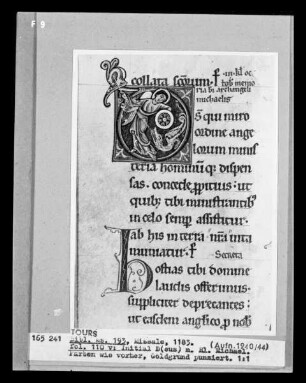 F 9
collata scõrum. f
iii. kl oc
tob memo
ria bi archangeli
michaelis
D s qui miro
ordine ange
lorum minis
teria hominũq; dispen
sas. concede ppitius. ut
quib; tibi ministrantib;
in celo semp assistitur.
ab his in terra uita
muniatur. f
Secreta
Hostias tibi domine
laudis offerimus.
suppliciter deprecantes.
ut easdem anglico p nob
165 241
TOURS
Bibl. Ms. 193, Missale, 1185.
Fol. 110 v: Initial D(eus) m. Hl. Michael.
Farben wie vorher, Goldgrund punziert. 1:1
(Aufn.1940/44)